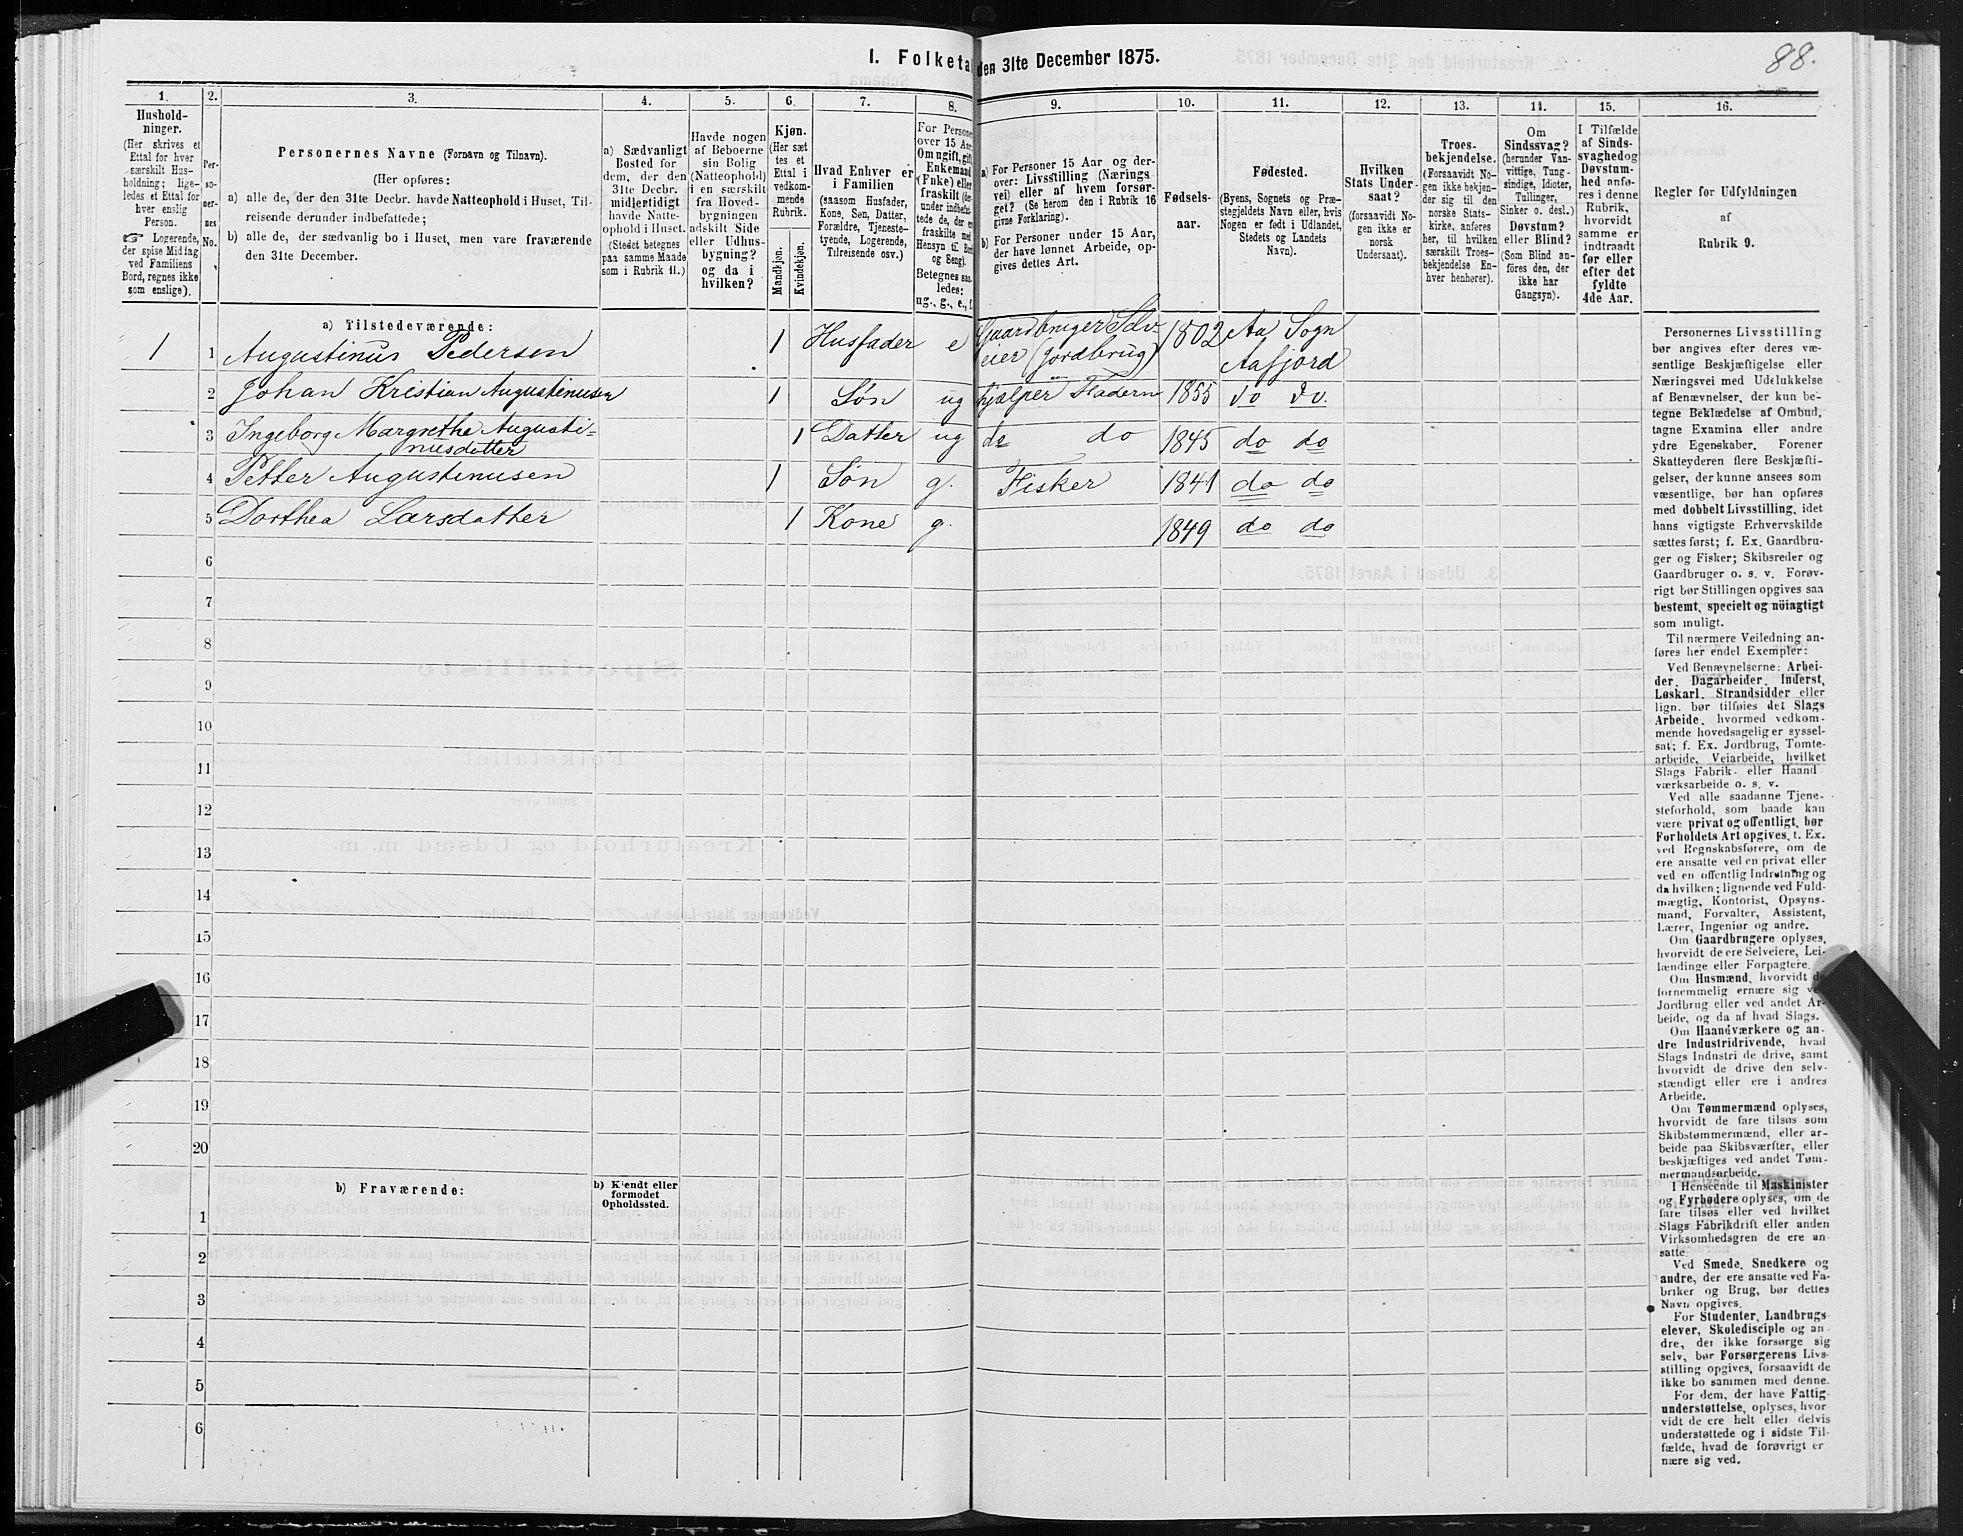 88.
I. Folketa den 31te December 1875.
1. 2. 3. 4. 5. 6. 7. 8. 9. 10. 11. 12. 13. 14. 15. 16.
Hushold-
ninger.
(Her skrives et
Ettal for hver
særskilt Hus-
holdning; lige-
ledes et Ettal for
hver enslig
Person.
☞ Logerende,
der spise Middag
ved Familiens
Bord, regnes ikke
som enslige).
Per-
so-
ner-
nes
No.
Personernes Navne (Fornavn og Tilnavn).
(Her opføres:
a) alle de, der den 31te Decbr. havde Natteophold i Huset, Til-
reisende derunder indbefattede;
b) alle de, der sædvanlig bo i Huset, men vare fraværende
den 31te December.
a) Sædvanligt
Bosted for
dem, der den
31te Decbr.
midlertidigt
havde Natte-
ophold i Huset.
(Stedet betegnes
paa samme Maade
som i Rubrik 11.)
Havde nogen
af Beboerne
sin Bolig
(Natteophold)
i en særskilt
fra Hoved-
bygningen
adskilt Side
eller Udhus-
bygning?
og da i
hvilken?
Kjøn.
(Her sæt
tes et
Ettal i
vedkom-
mende
Rubrik.
Mandkjøn.
Kvindekjøn.
Hvad Enhver er
i Familien
(saasom Husfader,
Kone, Søn, Datter,
Forældre, Tjeneste-
tyende, Logerende,
Tilreisende osv.)
For Persone
over 15 Aar
Om ugift, gift,
Enkemand
(Enke) eller
fraskilt (der-
under indbefat-
tede de, der er
fraskilte med
Hensyn til Bord
og Seng).
Betegnes saa-
ledes:
ug., g., e., f.
a) For Personer 15 Aar og der-
over: Livsstilling (Nærings
vei) eller af hvem forsør-
get? (Se herom den i Rubrik 16
givne Forklaring).
b) For Personer under 15 Aar,
der have lønnet Arbeide, op-
gives dettes Art.
Fødsels-
aar.
Fødested.
(Byens, Sognets og Præ-
stegjeldets Navn eller, hvis
Nogen er født i Udlandet,
Stedets og Landets
Navn).
Hvilken
Stats Under-
saat?
(forsaavidt No-
gen ikke er
norsk
Undersaat).
Troes-
bekjendelse.
(Forsaavidt No-
gen ikke bekjen-
der sig til den
norske Stats-
kirke, anføres
her, til hvilken
særskilt Troes-
bekjendelse En-
hver henhører).
Om
Sindssvag?
(herunder Van-
vittige, Tung-
sindige, Idioter,
Tullinger,
Sinker o. desl.)
Døvstum?
eller Blind?
(Som Blind an-
føres den, der
ikke har
Gangsyn).
I Tilfælde
af Sinds-
svaghedog
Døvstum-
hed anfø-
res i denne
Rubrik,
hvorvidt
samme er
indtraadt
før eller
efter det
fyldte
4de Aar.
Regler for Udfyldningen
af
Rubrik 9.
a) Tilstedeværende:
1 1 Augustinus Pedersen 1 Husfader e Gaardbruger Selv-
eier (Jordbrug) 1802 Aa Sogn
Aafjord
2 Johan Kristian Augustinusen 1 Søn ug hjælper Faderen 1855 do do.
3 Ingeborg Margrethe Augusti-
nusdatter 1 Datter ug do do 1845 do do
4 Petter Augustinusen 1 Søn g. Fisker 1841 do do
5 Dorthea Larsdatter 1 Kone g. 1849 do do
6
7
8
9
10
11
12
13
14
15
16
17
18
19
20
b) Fraværende:
b) Kjendt eller
formodet
Opholdssted.
1
2
3
4
5
6
Personernes Livsstilling
bør angives efter deres væ-
sentlige Beskjæftigelse eller
Næringsvei med Udelukkelse
af Benævnelser, der kun be-
tegne Beklædelse af Ombud,
tagne Examina eller andre
ydre Egenskaber. Forener
Skatteyderen flere Beskjæfti-
gelser, der kunne ansees som
væsentlige, bør han opføres
med dobbelt Livsstilling, idet
hans vigtigste Erhvervskilde
sættes først; f. Ex. Gaardbru-
ger og Fisker; Skibsreder og
Gaardbruger o. s. v. Forøv-
rigt bør Stillingen opgives saa
bestemt, specielt og nöiagtigt
som muligt.
Til nærmere Veiledning an-
føres her endel Exempler:
Ved Benævnelserne: Arbei-
der, Dagarbeider, Inderst,
Løskarl, Strandsidder eller
lign. bør tilføies det Slags
Arbeide, hvormed vedkom-
mende hovedsagelig er syssel-
sat; f. Ex. Jordbrug, Tomte-
arbeide, Veiarbeide, hvilket
Slags Fabrik- eller Haand
værksarbeide o. s. v.
Ved alle saadanne Tjene-
steforhold, som baade kan
være privat og offentligt, bør
Forholdets Art opgives, t. Ex.
ved Regnskabsførere, om de
ere ansatte ved en privat eller
ved en offentlig Indretning og
da hvilken; lignende ved Fuld-
mægtig, Kontorist, Opsyns-
mand, Forvalter, Assistent,
Lærer, Ingeniør og andre.
Om Gaardbrugere oplyses,
hvorvidt de ere Selveiere, Lei-
lændinge eller Forpagtere.
Om Husmænd, hvorvidt de
fornemmelig ernære sig ve
Jordbrug eller ved andet Ar-
beide, og da af hvad Slags.
Om Haandværkere og an-
dre Industridrivende, hvad
Slags Industri de drive, samt
hvorvidt de drive den selv-
stændigt eller ere i andres
Arbeide.
Om Tømmermænd oplyses,
hvorvidt de fare tilsøs som
Skibstømmermænd, eller ar-
beide paa Skibsværfter, eller
beskjæftiges ved andet Tøm-
mermandsarbeide.
I Henseende til Maskinister
og Fyrbødere oplyses, om de
fare tilsøs eller ved hvilket
Slags Fabrikdrift eller anden
Virksomhedsgren de ere an-
satte.
Ved Smede, Snedkere og
andre, der ere ansatte ved Fa-
briker og Brug, bør dettes
Navn opgives.
For Studenter, Landbrugs-
elever, Skoledisciple og an-
dre, der ikke forsørge sig
selv, bør Forsørgerens Livs-
stilling opgives, forsaavidt de
ikke bo sammen med denne.
For dem, der have Fattig-
understøttelse, oplyses, hvor-
vidt de ere helt eller delvis
understøttede og i sidste Til-
fælde, hvad de forøvrigt er
nære sig ved.